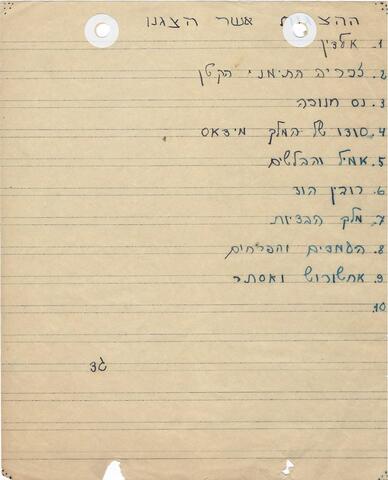 ההצגות אשר הצגנו
1. אלדין
2. זכריה התימני הקטן
3. נס חנוכה
4. סודו של המלך מידאס
5. אמיל והבלשים
6. רובין הוד
7. מלך הבדיות
8. העמדים והפרחים
9. אחשורוש ואסתר
10.